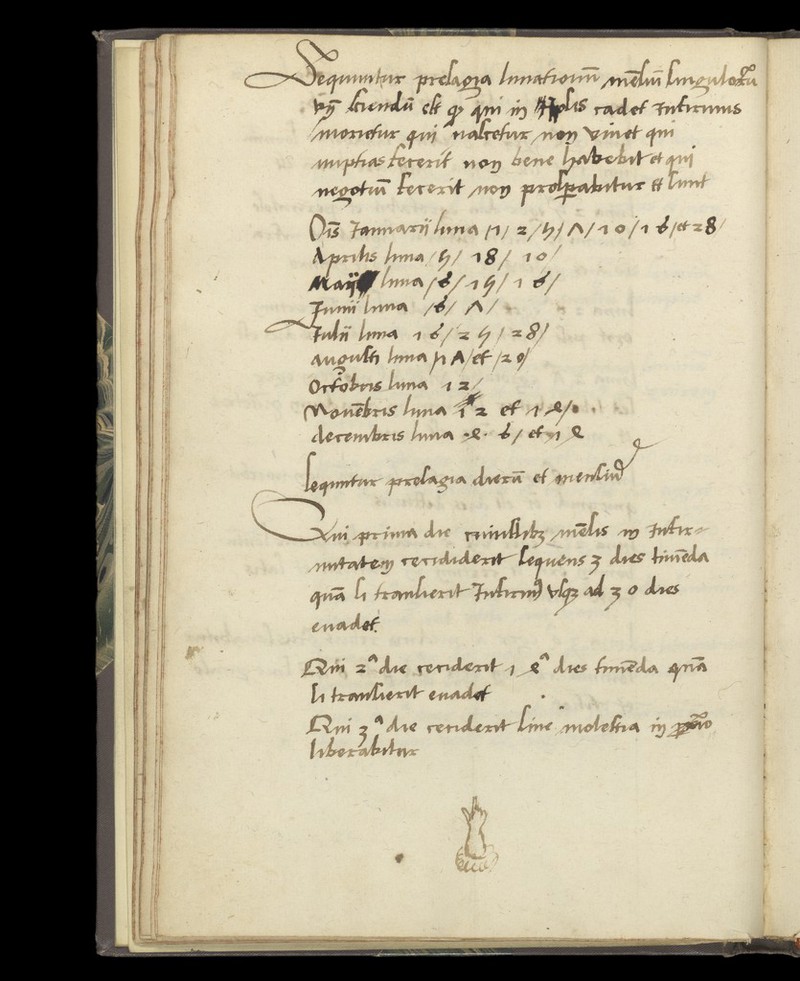 Sequuntur presagia lunationū mēsiū singuloꝝ
vn̄ sciendū est ꝙ qui in istis cadet infirmus
morietur qui nascetur non vivet qui
nuptias fecerit non bene habebit et qui
negotiū fecerit non prosꝑabitur
Januarii luna /1/ 2/ 5/ 7/ 10/ 16/ et 28/
Aprilis luna /5/ 18/ 10/
Maÿ luna /6/ 15/ 16/
Junii luna /6/ 7/
Julii luna 16/ 25/ 28/
augusti luna /17/ et /20/
Octobris luna 12/
Novēbris luna 12 et 18/
decembris luna .8. 6/ et 18
sequntur presagia dierū et mensiū
Qui prima die cuiuslibꝫ mēsis in infir-
mitatem ceciderit sequens 3 dies timēda
quā si transierit usqꝫ ad 30 dies
evadet.
Qui 2ᵃ die ceciderit 18ᵃ dies timēda quā
si transierit evadet
Qui 3ᵃ die ceciderit sine molestia in
liberabitur